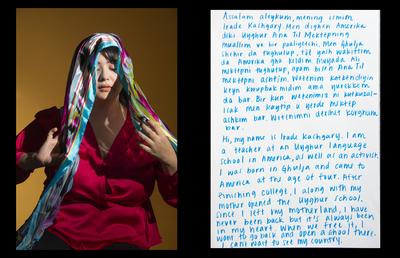 Assalam aleykum, mening ismim
Irade Kashgary. Men dighen Amerika
diki Uyghur Ana Til Mektepning
muellim ve bir paaliyetchi. Men Ghulja
shehir da tughulup, töt yash waktittim
da Amerika gha keldim
mektepni tughulup, apam bilen Ana Til
mektepni achtim. Wetenim ketkendiyin
keyn körüpbak midim ama yürekkem
da bar. Bir kün wetenimiz ni kutkuzal-
isak men kaytip u yerde mektep
achkim bar. Wetenimni
bar.
Hi, my name is Irade Kashgary. I am
a teacher at an Uyghur language
school in America, as well as an activist.
I was born in Ghulja and came to
America at the age of four. After
finishing college, I along with my
mother opened the Uyghur school.
Since I left my motherland, I have
never been back but it's always been
in my heart. When we free it, I
want to go back and open a school there.
I can't wait to see my country.